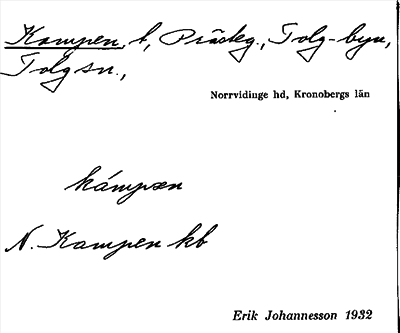 Kampen, l, Prästeg., Tolg-byn,
Tolg sn.,
Norrvidinge hd, Kronobergs län
kámpən
N. Kampen kb
Erik Johannesson 1932